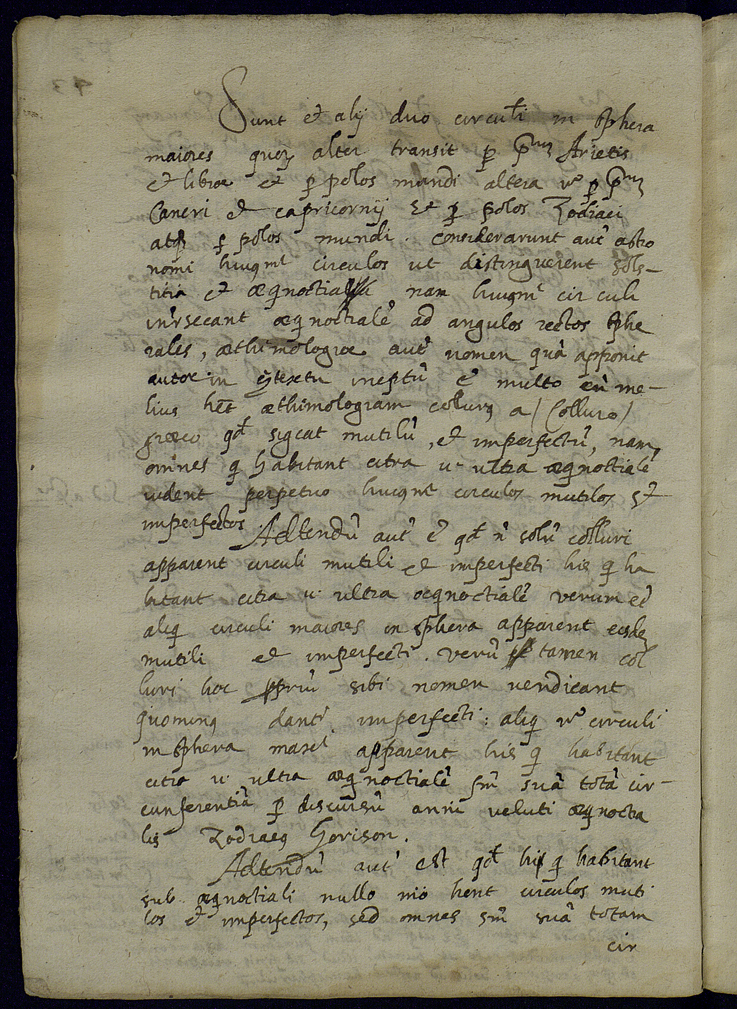 Sunt et alij duo circuli in sphera
maiores quor, alter transit p prm Arietis
et librae et p polos mundi altera vo p prm
Cancri et capricornij et p polos Zodiaci
atq p polos mundi. Considerarunt aut astro
nomi huiqmt circulos ut distinguerent sols-
titia et aeqnoctia nam huiqmt cir culi
intrsecant aeqnoctiale ad angulos rectos sphe
rales, aethimologiae aut nomen qua apponit
autor in ineptu e multo eni me-
lius het aethimologiam collurq a (Colluro)
graeco qd sigcat mutilu, et imperfectu, nam,
omnes q habitant citra u ultra aeqnoctiale
vident perpetuo huiqmt circulos mutilos et
imperfectos. Adtendu aut e qd n solu colluri
apparent circuli mutili et imperfecti his q ha
bitant citra u. ultra aeqnoctiale verum et
aliq circuli maiores in sphera apparent eisde
mutili et imperfecti. Veru tamen col
luri hoc ppriu sibi nomen vendicant
quoniaq dant imperfecti: aliq vo circuli
in sphera apparent his q habitant
citra u. ultra aeqnoctiale sm sua tota cir-
cunferentia p discursu anni veluti aeqnoctia
lis Zodiacq Horison.
Adtendu aut est qd his q habitant
sub aeqnoctiali nullo mo hent circulos muti
los et imperfectos, sed omnes sm sua totam
cir